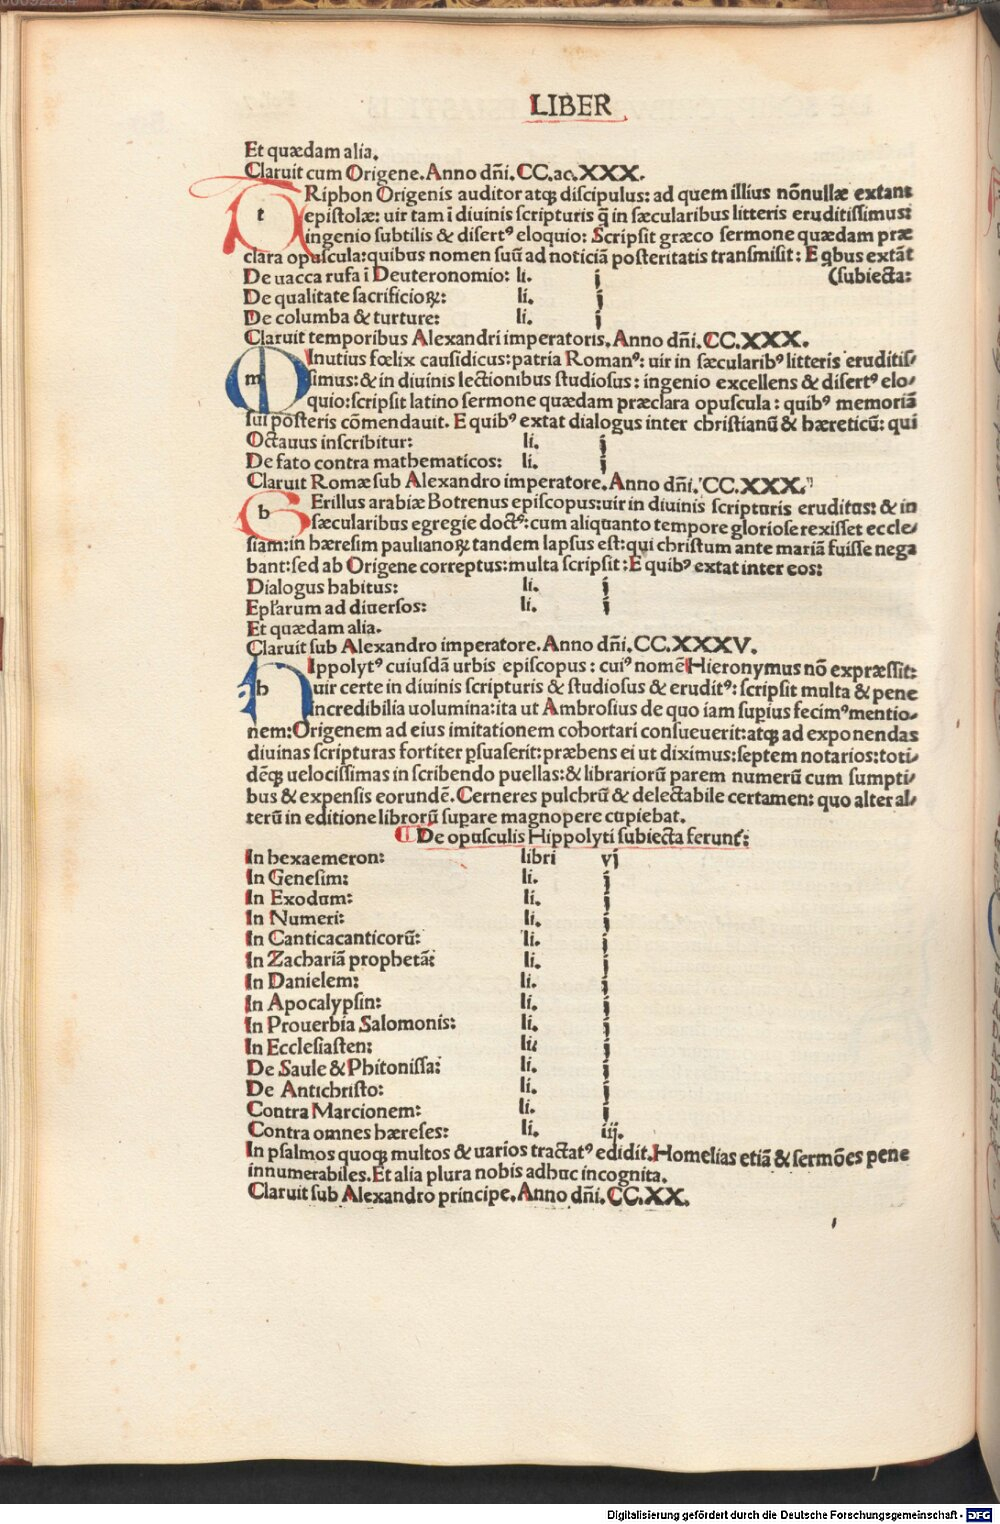 LIBER
Et quædam alia.
Claruit cum Origene. Anno dñi. CC.ac.XXX.
tRiphon Origenis auditor atqꝫ discipulus: ad quem illius nōnullæ extant
epistolæ: uir tam ī diuinis scripturis q̃ in sæcularibus litteris eruditissimus:
ingenio subtilis & disertꝰ eloquio: Scripsit græco sermone quædam præ
clara opuscula: quibus nomen suū ad noticiā posteritatis transmisit: E qbus extāt
(subiecta:
De uacca rufa ī Deuteronomio: li. j
De qualitate sacrificioꝝ: li. j
De columba & turture: li. j
Claruit temporibus Alexandri imperatoris. Anno dñi. CC.XXX.
mInutius fœlix causidicus: patria Romanꝰ: uir in sæcularibꝰ litteris eruditis⸗
simus: & in diuinis lectionibus studiosus: ingenio excellens & disertꝰ elo⸗
quio: scripsit latino sermone quædam præclara opuscula: quibꝰ memoriā
sui posteris cōmendauit. E quibꝰ extat dialogus inter christianū & hæreticū: qui
Octauus inscribitur: li. j
De fato contra mathematicos: li. j
Claruit Romæ sub Alexandro imperatore. Anno dñi. CC.XXX.
bErillus arabiæ Botrenus episcopus: uir in diuinis scripturis eruditus: & in
sæcularibus egregie doctꝰ: cum aliquanto tempore gloriose rexisset eccle⸗
siam: in hæresim paulianoꝝ tandem lapsus est: qui christum ante mariā fuisse nega
bant: sed ab Origene correptus: multa scripsit: E quibꝰ extat inter eos:
Dialogus habitus: li. j
Epl'arum ad diuersos: li. j
Et quædam alia.
Claruit sub Alexandro imperatore. Anno dñi. CC.XXXV.
hIppolytꝰ cuiusdā urbis episcopus: cuiꝰ nomē Hieronymus nō expræssit:
uir certe in diuinis scripturis & studiosus & eruditꝰ: scripsit multa & pene
incredibilia uolumina: ita ut Ambrosius de quo iam supius fecimꝰ mentio⸗
nem: Origenem ad eius imitationem cohortari consueuerit: atqꝫ ad exponendas
diuinas scripturas fortiter ꝑsuaserit: præbens ei ut diximus: septem notarios: toti⸗
dēqꝫ uelocissimas in scribendo puellas: & librariorū parem numerū cum sumpti⸗
bus & expensis eorundē. Cerneres pulchrū & delectabile certamen: quo alter al⸗
terū in editione librorū supare magnopere cupiebat.
De opusculis Hippolyti subiecta ferunt̃:
In hexaemeron: libri vj
In Genesim: li. j
In Exodum: li. j
In Numeri: li. j
In Canticacanticorū: li. j
In Zachariā prophetā: li. j
In Danielem: li. j
In Apocalypsin: li. j
In Prouerbia Salomonis: li. j
In Ecclesiasten: li. j
De Saule & Phitonissa: li. j
De Antichristo: li. j
Contra Marcionem: li. j
Contra omnes hæreses: li. iij.
In psalmos quoqꝫ multos & uarios tractatꝰ edidit. Homelias etiā & sermōes pene
innumerabiles. Et alia plura nobis adhuc incognita.
Claruit sub Alexandro principe. Anno dñi. CC.XX.
Digitalisierung gefördert durch die Deutsche Forschungsgemeinschaft - DFG